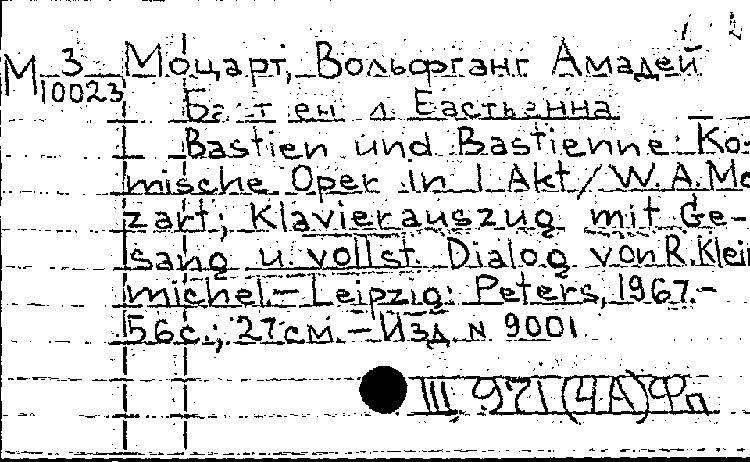 М 3 Моцарт, Вольфганг Амадей
10023
Bastien und Bastienne: Ko-
mische Oper in 1 Akt / W. A. Mo
zart; Klavierauszug mit Ge-
sang u. vollst. Dialog von R. Klein
michel. – Leipzig: Peters, 1967. –
56 с.; 27 см. – Изд. N 9001
III 971 (4А) Фп